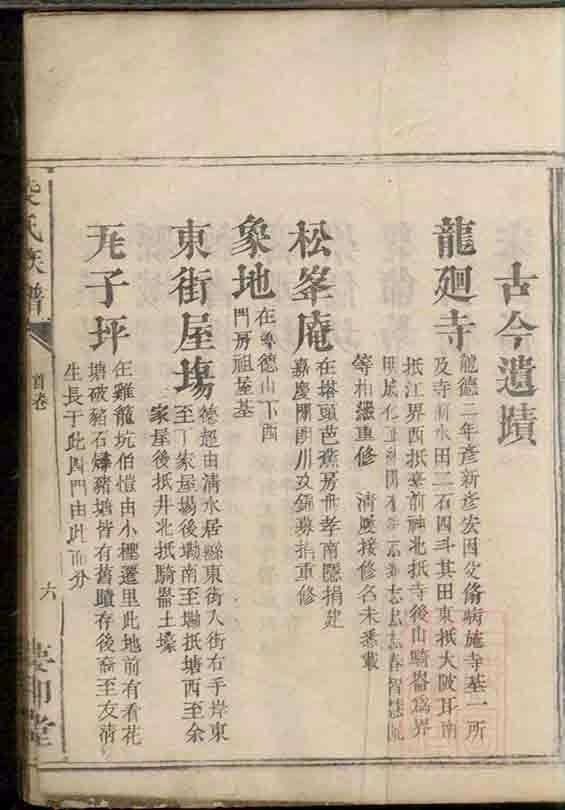 古今遺蹟
龍廻寺
龍德二年彥新彥宏因父脩病施寺基一所
及寺前水田二石四斗其田東抵大陂耳南
抵江界西抵臺前神北抵寺後山騎崙爲界
明成化
等相繼重修 清屢接修名未悉載
松峯庵
在塔頭芭蕉房世孝南隱捐建
嘉慶剛朗川玟錦募捐重修
象地
在尊德山下酉
門房祖屋基
東街屋塲
德超由清水居縣東街入街右手岸東
至丁家屋塲後墈南至墈抵塘西至余
家屋後抵井北抵騎崙土壕
旡子坪
在雞籠坑伯愷由小櫪遷里此地前有看花
塘破豬石 豬塘皆有舊蹟存後裔至友清
生長于此四門由此而分
氏族譜
首卷
六